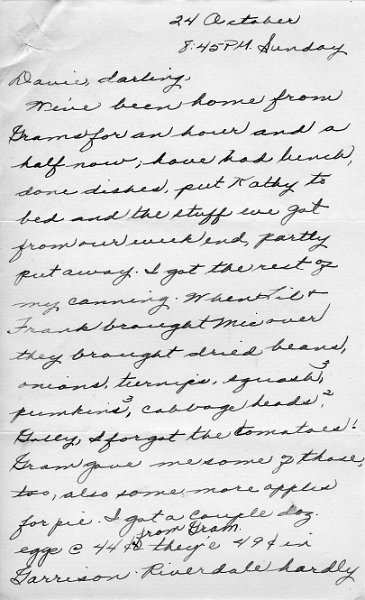 24 October
8:45 P.M. Sunday
Davie, darling,
We've been home from
Grams for an hour and a
half now; have had lunch,
done dishes, put Kathy to
bed and the stuff we got
from our week end, partly
put away. I got the rest of
my canning. When Lil &
Frank brought Mic over
they brought dried beans,
onions, turnips, squash 3,
pumkins 3, cabbage heads 2
Golly, I forgot the tomatoes!
Gram gave me some of those,
too, also some more apples
for pie. I got a couple doz.
from Gram
eggs @ 44¢ they'e 49¢ in
Garrison. Riverdale hardly